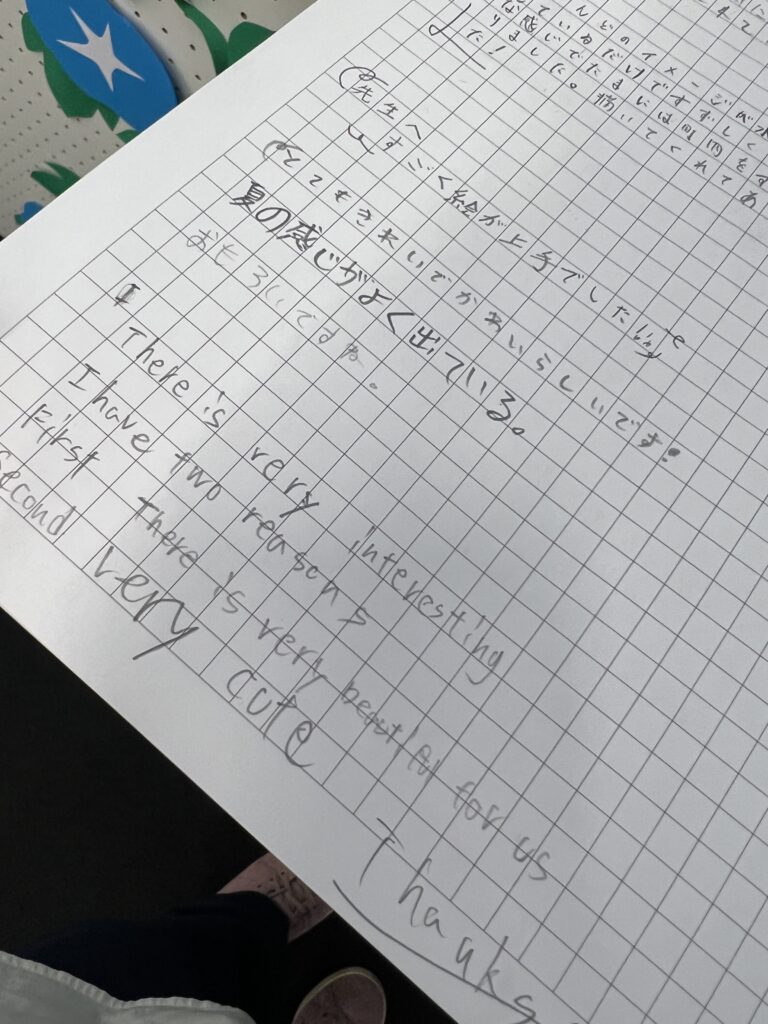 のイメージが
ているだけですずしく
な感じでたまには時間をす
りました。描いてくれてあ
た!
先生へ
すごく絵が上手でした
とてもきれいでかあいらしいです!
夏の感じがよく出ている。
おもろいですね。
There is very interesting
I have two reasons
First There is very beautiful for us
Second very cute
Thanks